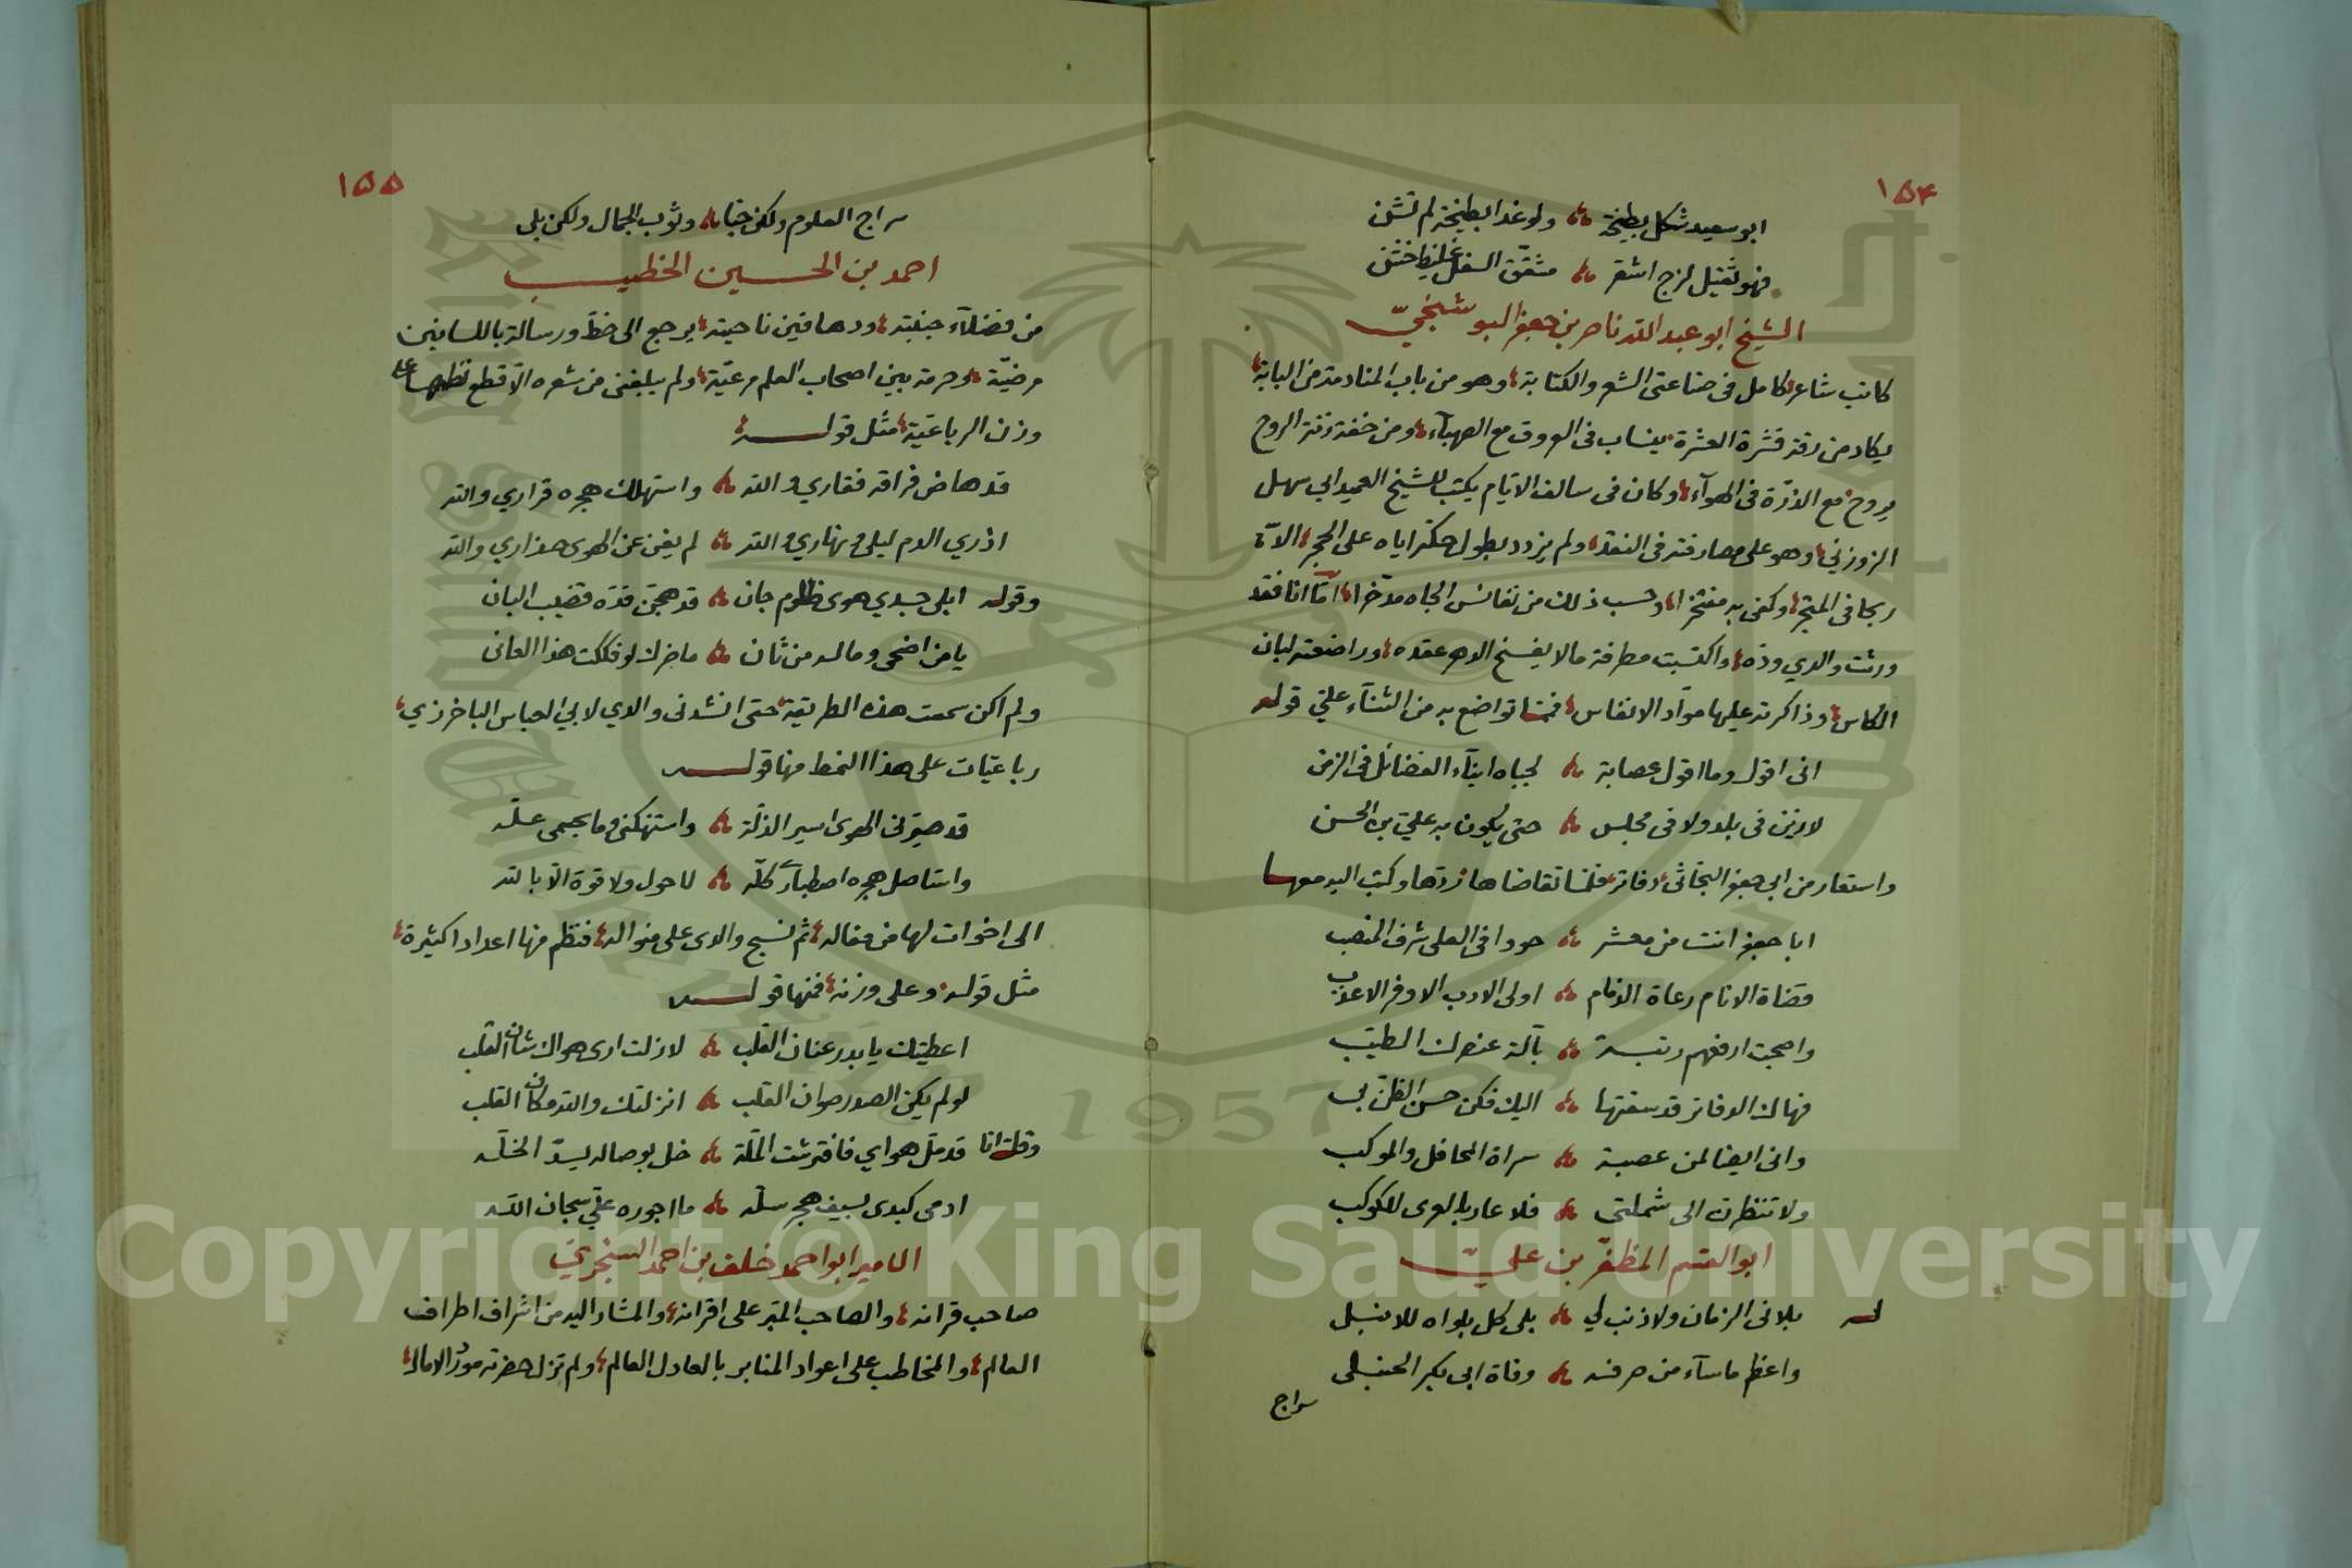 ١٥٤
ابو سعيد شكل بطيخة ولو غدا بطيخة لم تشن
فهو ثقيل لزج اشقر مشقق السفل غليظ خشن
الشيخ ابو عبد الله ناصر بن جعفر البوشنجيّ
كاتب شاعر كامل فى صناعتى الشعر والكتابة وهو من باب المنادمة من البابة
يكاد من رقة قشرة العشرة ينساب فى العروق مع الصهبآء ومن خفة زنة الروح
يروح مع الذرّة فى الهوآء وكان فى سالف الايّام يكتب للشيخ العميد ابي سهل
الزوزني وهو على مصارفته فى النقد ولم يزدد بطول حكّه اياه على الحجر الّا
ربحا فى المتجر وكفى به مفتخرا وحسب ذلك من نفائس الجاه مدّخرا امّا انا فقد
ورثت والدي ودّه واكتسبت مطرفة مالا يفسخ الدهر عقده وراضعته لبان
الكاس وذاكرته عليها موآد الانفاس فمما تواضع به من الثنآء عليّ قوله
انى اقول وما اقول عصابة لجباه ابنآء الفضائل فى الزمن
لا زين فى بلد ولا فى مجلس حتى يكون به علي بن الحسن
واستعار من ابي جعفر البحّاثى دفاتر فلمّا تقاضاها ردّها وكتب اليه معها
ابا جعفر انت من معشر حووا فى العلى شرف المنصب
قضاة الانام رعاة الذمام اولى الادب الاوفر الاعذب
واصبحت ارفعهم رتبة بآلة عنصرك الطيّب
فهاك الدفاتر قد سقتها اليك فكن حسن الظنّ بى
وانى ايضا لمن عصبة سراة المحافل والموكب
ولا تنظرن الى شملتى فلا عار بالعرى للكوكب
ابو القسم المظفّر بن عليّ
له بلانى الزمان ولا ذنب لي بلى كل بلواه للانبل
واعظم ماسآء من صرفه وفاة ابى بكر الحنبلى
سراج
١٥٥
سراج العلوم ولكن خبا وثوب الجمال ولكن بلى
احمد بن الحسين الخطيب
من فضلآء جنبته ودهاقين ناحيته يرجع الى خظ ورسالة باللسانين
مرضيّة وحرمة بين اصحاب العلم مرعيّة ولم يبلغنى من شعره الّا قطع نظمها على
وزن الرباعيّة مثل قوله
قد هاض فراقه فقاري والله واستهلك هجره قراري والله
اذري الدم ليلى ونهاري والله لم يغن عن الهوى حذاري والله
وقوله ابلى جسدي هوى ظلوم جان قد هجّن قدّه قضيب البان
يامن اضحى وماله من ثان ما ضرك لو فككت هذا العانى
ولم اكن سمعت هذه الطريقة حتى انشدنى والدي لابي العباس الباخرزي
رباعيّات على هذا النمط منها قوله
قد صيّرنى الهوى اسير الذلّة واستنهكنى وما بجسمى علّه
واستاصل هجره اصطباري كلّه لا حول ولا قوة الّا بالله
الى اخوات لها من مقاله ثم نسج والدى على منواله فنظم منها اعدادا كثيرة
مثل قوله وعلى وزنه فمنها قوله
اعطيتك يا بدر عنان القلب لازلت ارى هواك شان القلب
لو لم يكن الصدر صوان القلب انزلتك والله مكان القلب
وقلت انا قد ملّ هواي فافترشت الملّة خل بوصاله يسدّ الخلّه
ادمى كبدى بسيف هجر سلّه ما اجوره عليّ سبحان الله
الامير ابو احمد خلف بن احمد السنجري
صاحب قرانه والصاحب المبّر على اقرانه والمشار اليه من اشراف اطراف
العالم والمخاطب على اعواد المنابر بالعادل العالم ولم تزل حضرته مورد الامال
Copyright © King Saud University
1957